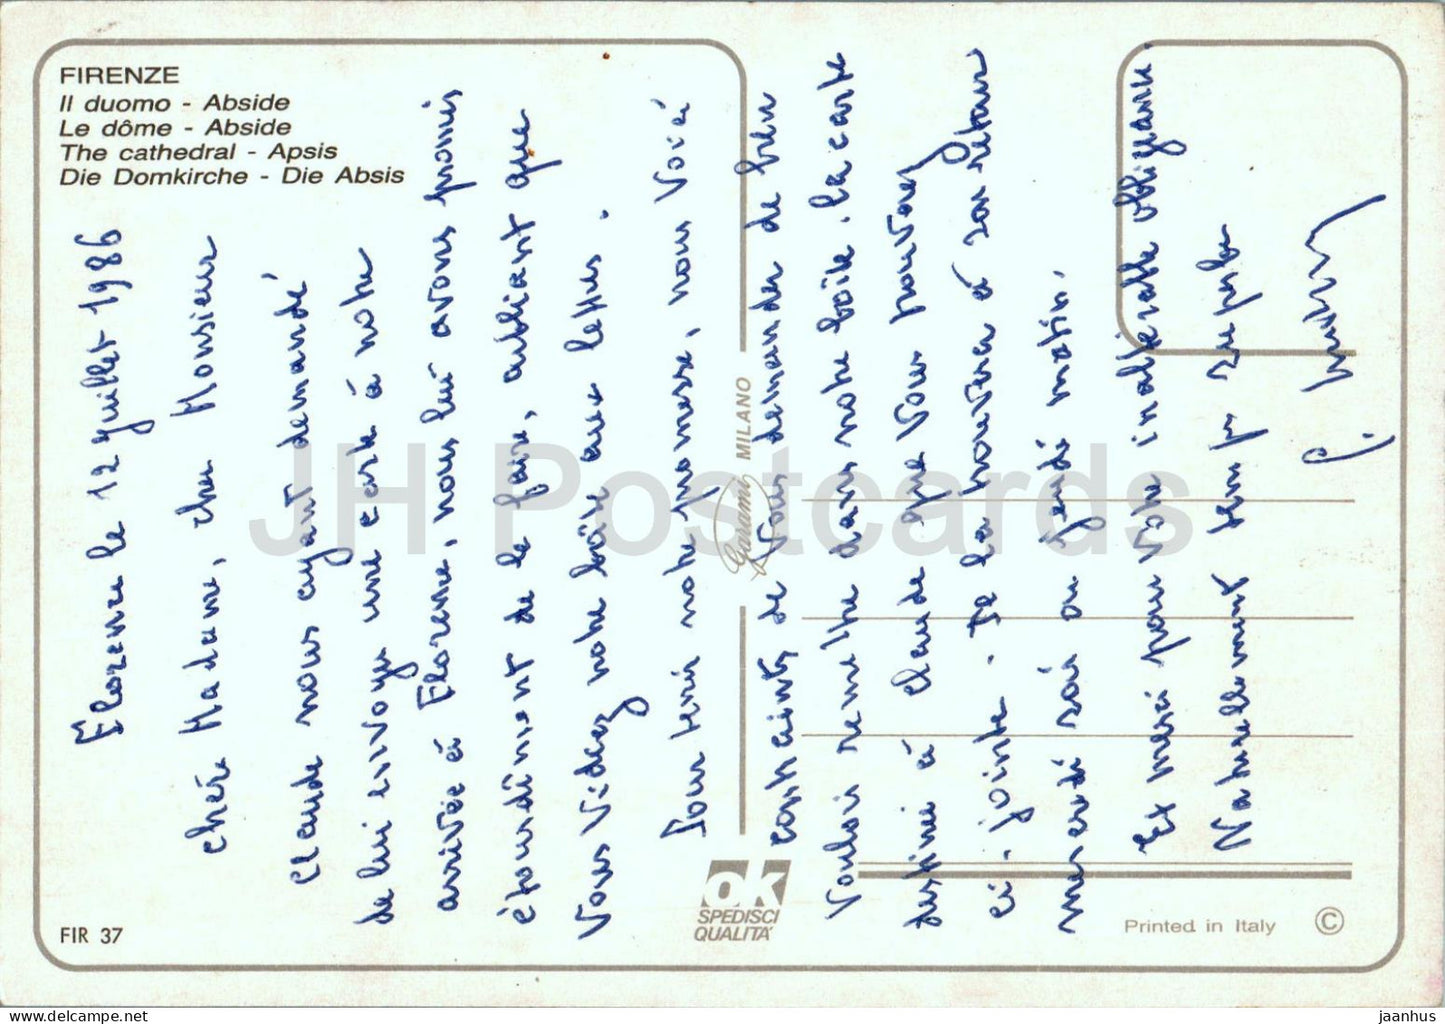 FIRENZE
Il duomo - Abside
Le dôme - Abside
The cathedral - Apsis
Die Domkirche - Die Absis
Florence le 12 juillet 1986
Chère Madame, cher Monsieur
Claude nous ayant demandé
de lui envoyer une carte à notre
arrivée à Florence, nous lui avons promis
étourdiment de le faire, oubliant que
Vous Videz notre boîte aux lettres.
Pour tenir notre promesse, nous Voici
contraints de Vous demander de bien
Vouloir remettre dans notre boîte, la carte
destinée à Claude que Vous trouverez
ci-jointe. Je la trouverai à son retour
mercredi soir ou jeudi matin.
Et merci pour Votre inaltérable obligeance.
Naturellement temps superbe
GARAMI MILANO
ok
SPEDISCI
QUALITÀ
FIR 37
Printed in Italy ©
JH Postcards
jaanhus—delcampe.net